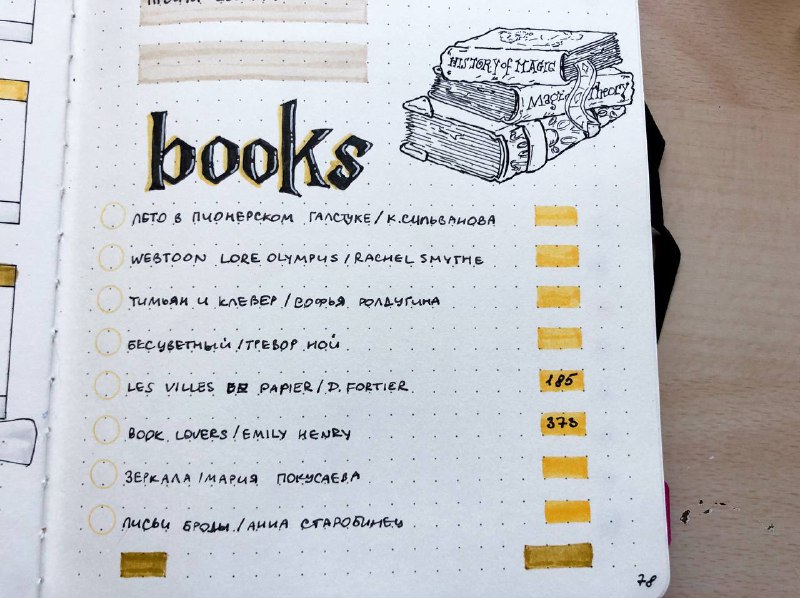 HISTORY of MAGIC
Magic Theory
books
ЛЕТО В ПИОНЕРСКОМ ГАЛСТУКЕ / К. СИЛЬВАНОВА
WEBTOON LORE OLYMPUS / RACHEL SMYTHE
ТИМЬЯН И КЛЕВЕР / СОФЬЯ РОЛДУГИНА
БЕСЦВЕТНЫЙ / ТРЕВОР НОЙ
LES VILLES DE PAPIER / D. FORTIER 185
BOOK LOVERS / EMILY HENRY 373
ЗЕРКАЛА / МАРИЯ ПОКУСАЕВА
ЛИСЬИ БРОДЫ / АННА СТАРОБИНЕЦ
78